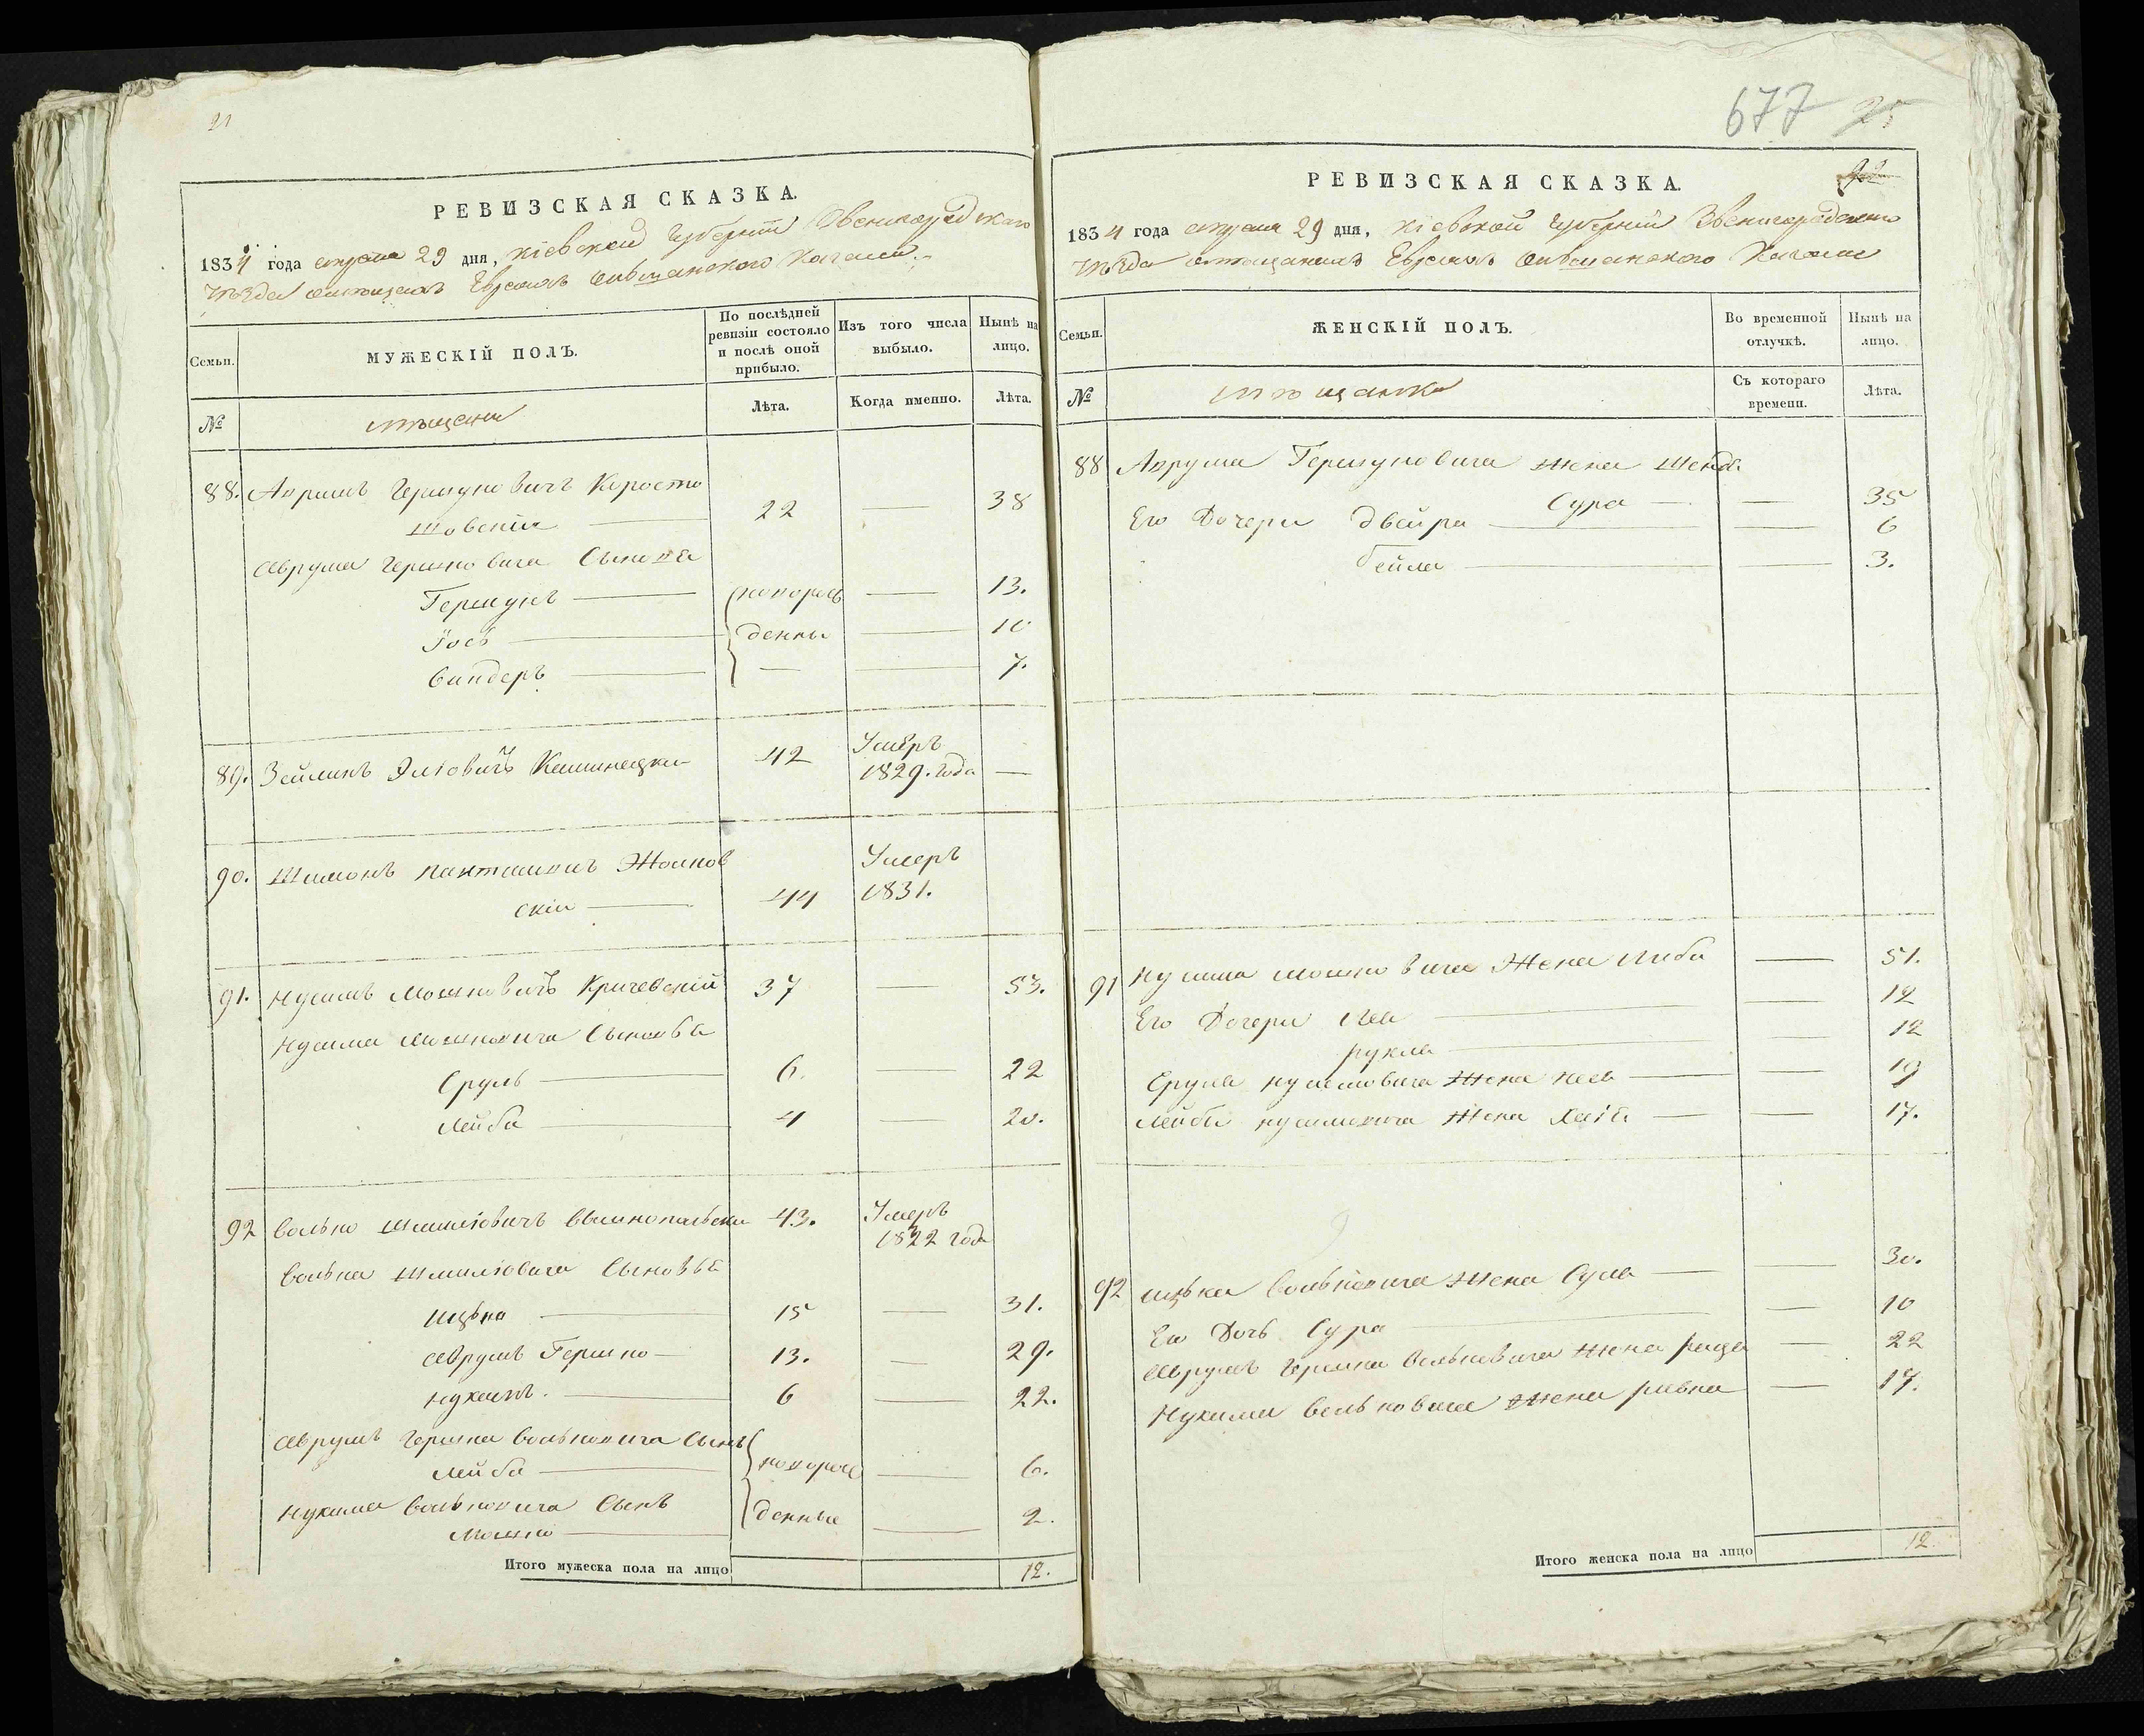 21
РЕВИЗСКАЯ СКАЗКА.
1834 года апреля 29 дня, Кіевской Губерніи Звенигородскаго
уѣзда о мѣщанахъ Евреахъ Ольшанского Кагала.
Семьи.
МУЖЕСКІЙ ПОЛЪ.
По послѣдней ревизіи состояло и послѣ оной прибыло.
Изъ того числа выбыло.
Нынѣ на лицо.
№
мѣщане
Лѣта.
Когда именно.
Лѣта.
88. Аврумъ Гершуновичъ Коросты
шовскій 22 — 38
Аврума Гершковича Сыновья
Гершунъ новорож — 13.
Іось денны — 10
Сендеръ — — 7.
89. Зейликъ Эліовичъ 42 Умеръ
1829. года —
90. Шимонъ Умеръ
скій 44 1831.
91. Нусимъ Мошковичъ Кричевскій 37 — 53.
Нусима Мошковича Сыновья
Сруль 6. — 22
Лейба 4 — 20.
92 Волько Шмиліовичъ 43. Умеръ
1822 года
Волька Шмиліовича Сыновья
Ицько 15 — 31.
Аврумъ Гершко 13. — 29.
Нухимъ. 6 — 22.
Аврумъ Гершка Вольковича Сынъ
Лейба новорож — 6.
Нухима Вольковича Сынъ
Мошко денные — 2.
Итого мужеска пола на лицо 12.
677 25
РЕВИЗСКАЯ СКАЗКА.
1834 года апреля 29 дня, Кіевской Губерніи Звенигородского
уѣзда о мѣщанахъ Евреахъ Ольшанского Кагала
Семьи.
ЖЕНСКІЙ ПОЛЪ.
Во временной отлучкѣ.
Нынѣ на лицо.
№
мѣщанки
Съ котораго времени.
Лѣта.
88 Аврума Гершуновича жена Шейндя
Сура — — 35
Его Дочери Двейра — — 6
Бейла — — 3.
91 Нусима Мошковича Жена Либа — 51.
Его Дочери Лея — — 12
рухля — — 12
Сруля Нусимовича Жена — — 19
Лейбы Нусимовича Жена Хая — — 17.
92 Ицька Вольковича Жена Сура — — 30.
Его Дочь Сура — — 10
Аврумъ Гершка Вольковича Жена — 22
Нухима Вольковича Жена ривка — 17.
Итого женска пола на лицо 12.